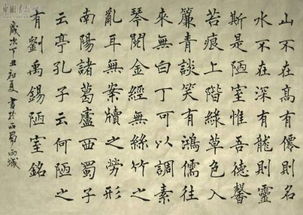 山不在高有僊則名
水不在深有龍則靈
斯是陋室惟吾德馨
苔痕上階綠草色入
簾青談笑有鴻儒往
來無白丁可以調素
琴閱金經無絲竹之
亂耳無案牘之勞形
南陽諸葛廬西蜀子
云亭孔子云何陋之
有劉禹錫陋室銘
歲次丁丑初夏書於西蜀雨城